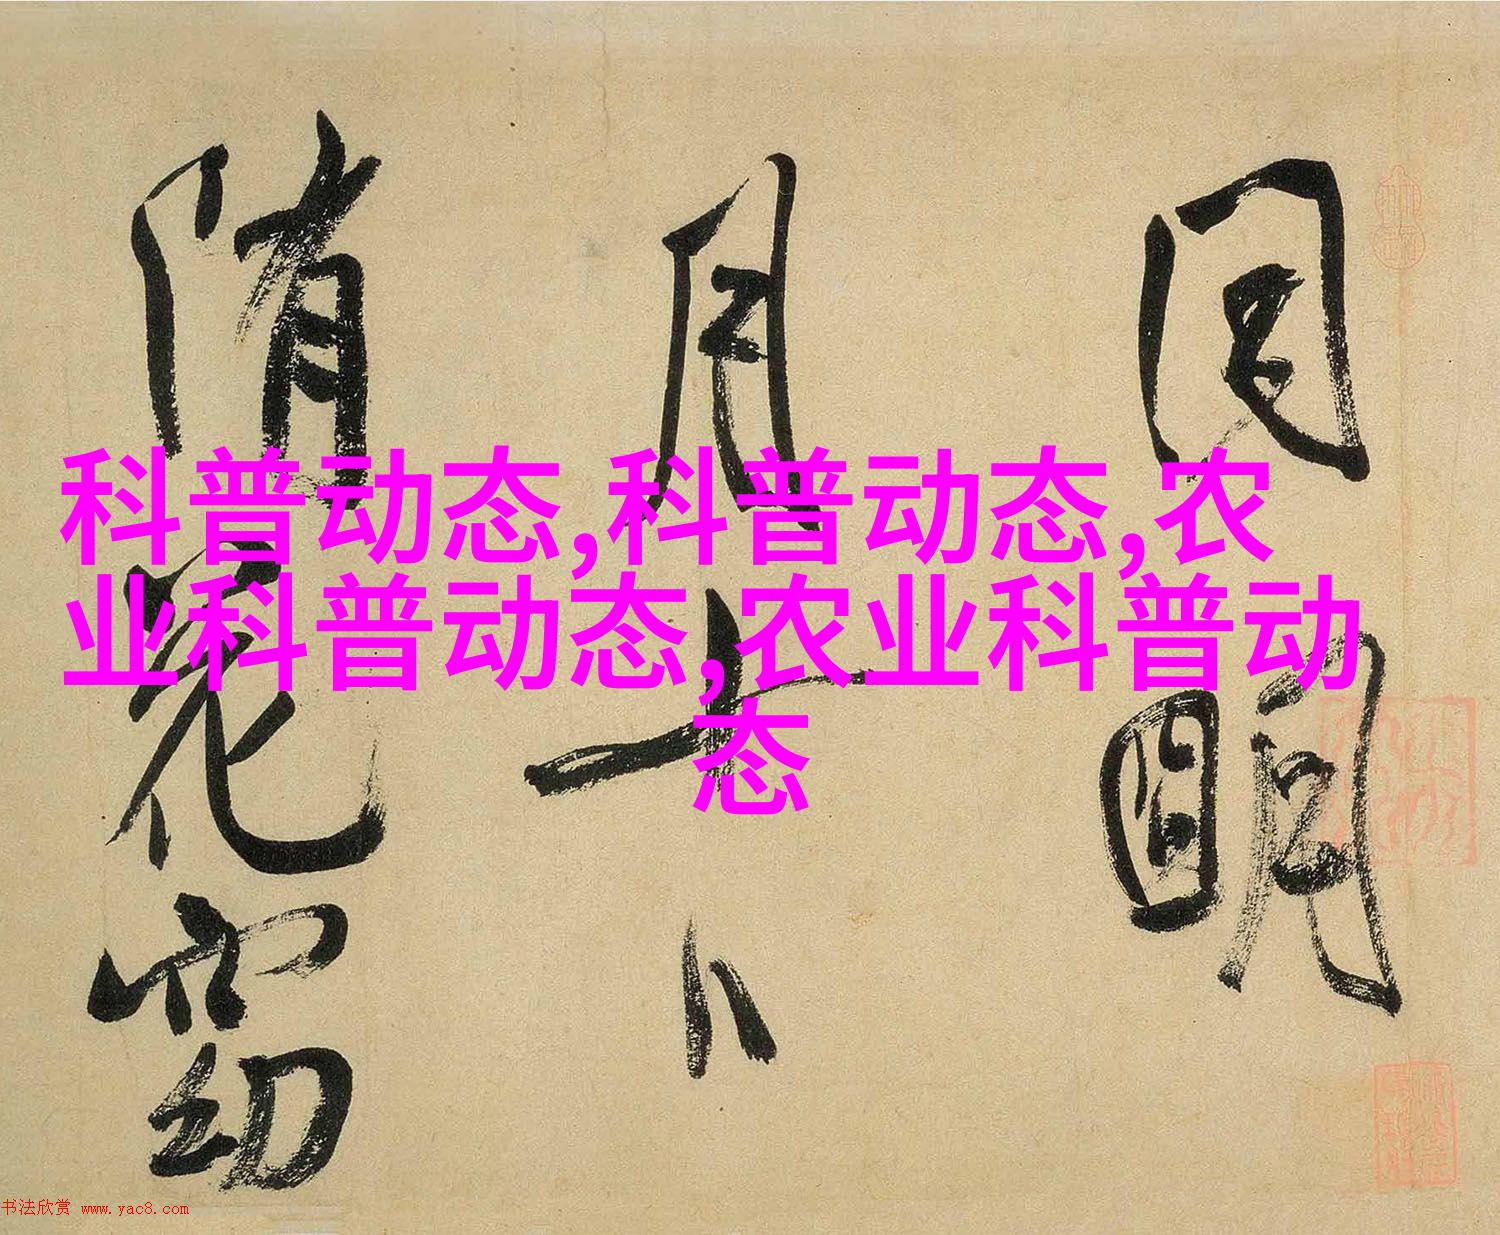 科普动态,科普动态,农
业科普动态,农业科普动
态
同明
月十八
随花窃
书法欣赏 www.yac8.com